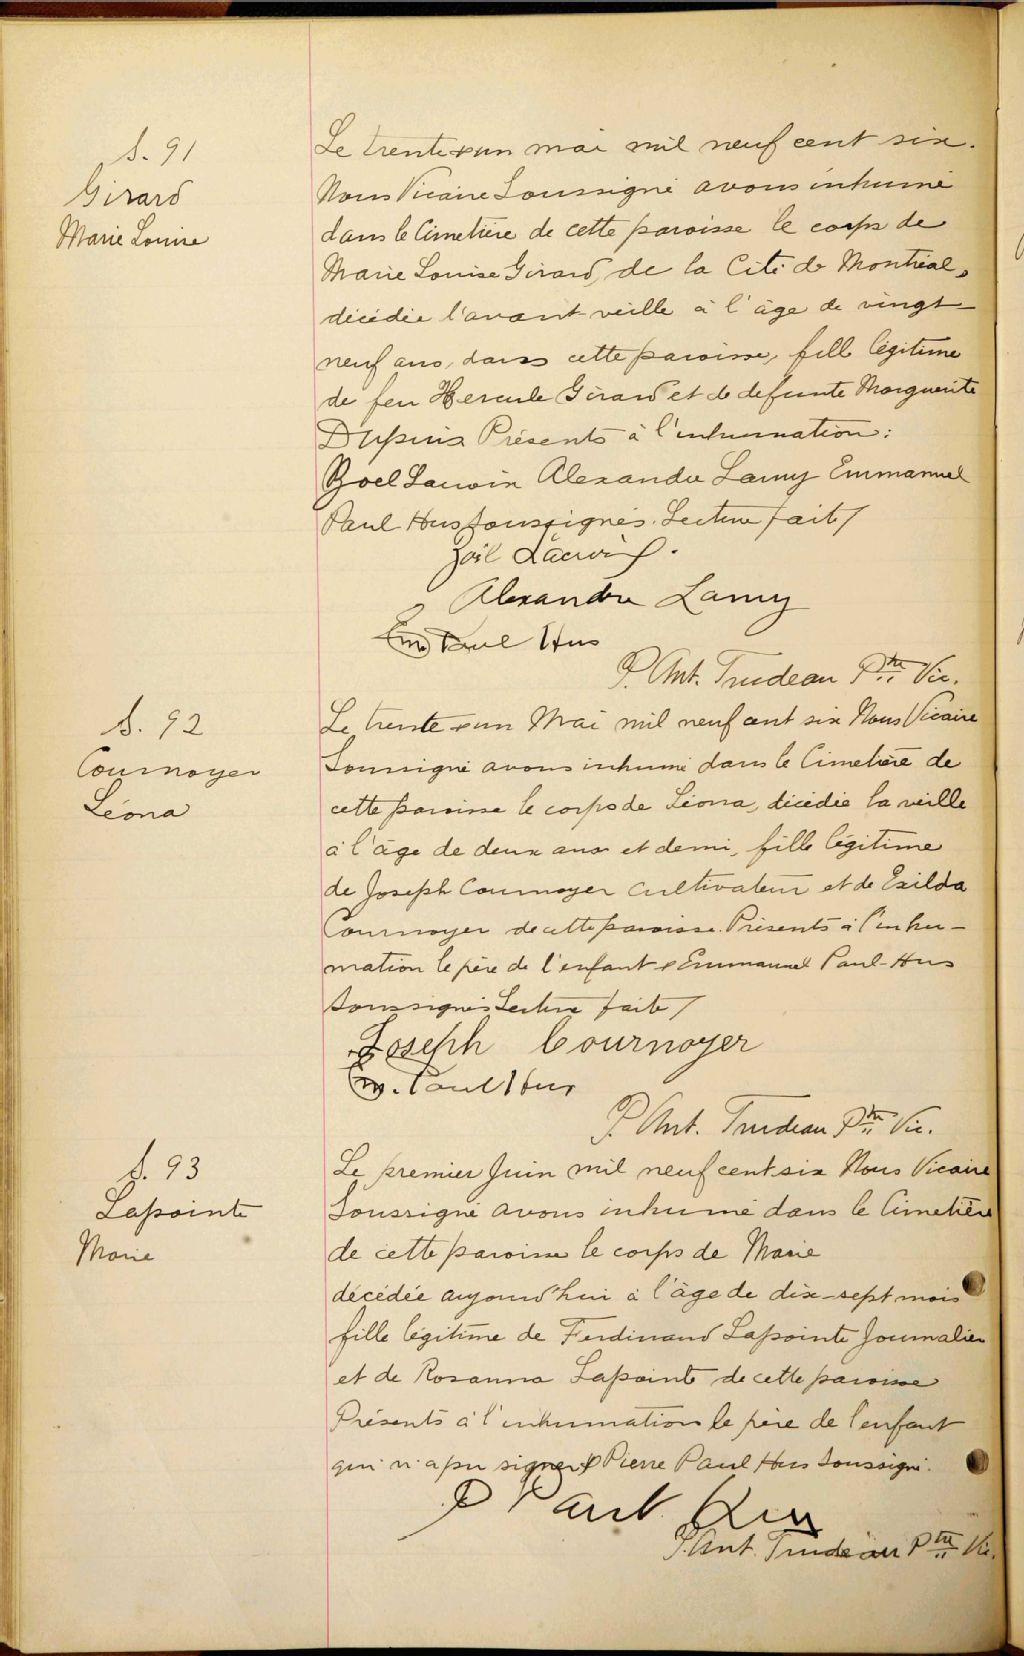 S. 91
Girard
Marie Louise
Le trente & un mai mil neuf cent six.
Nous Vicaire Soussigné avons inhumé
dans le Cimetière de cette paroisse le corps de
Marie Louise Girard, de la Cité de Montréal,
décédée l'avant veille à l'âge de vingt
neuf ans, dans cette paroisse, fille légitime
de feu Hercule Girard et de defunte Marguerite
Dupuis Présents à l'inhumation:
Zoel Lacroix Alexandre Lamy Emmanuel
Paul Hus soussignés. Lecture faite/
Zoïl Lacroix.
Alexandre Lamy
Em. Paul Hus
P. Ant. Trudeau Ptre Vic.
S. 92
Cournoyer
Léona
Le trente & un Mai mil neuf cent six Nous Vicaire
Soussigné avons inhumé dans le Cimetière de
cette paroisse le corps de Léona, décédée la veille
à l'âge de deux ans et demi, fille légitime
de Joseph Cournoyer cultivateur et de Exilda
Cournoyer de cette paroisse. Présents à l'inhu-
mation le père de l'enfant & Emmanuel Paul-Hus
soussignés Lecture faite/
Joseph Cournoyer
Em. Paul Hus
P. Ant. Trudeau Ptre Vic.
S. 93
Lapointe
Marie
Le premier Juin mil neuf cent six Nous Vicaire
Soussigné avons inhumé dans le Cimetière
de cette paroisse le corps de Marie
décédée aujourd'hui à l'âge de dix-sept mois
fille légitime de Ferdinand Lapointe Journalier
et de Rosanna Lapointe de cette paroisse
Présents à l'inhumation le père de l'enfant
qui n'a pu signer & Pierre Paul Hus soussigné.
P Paul Hus
P. Ant. Trudeau Ptre Vic.